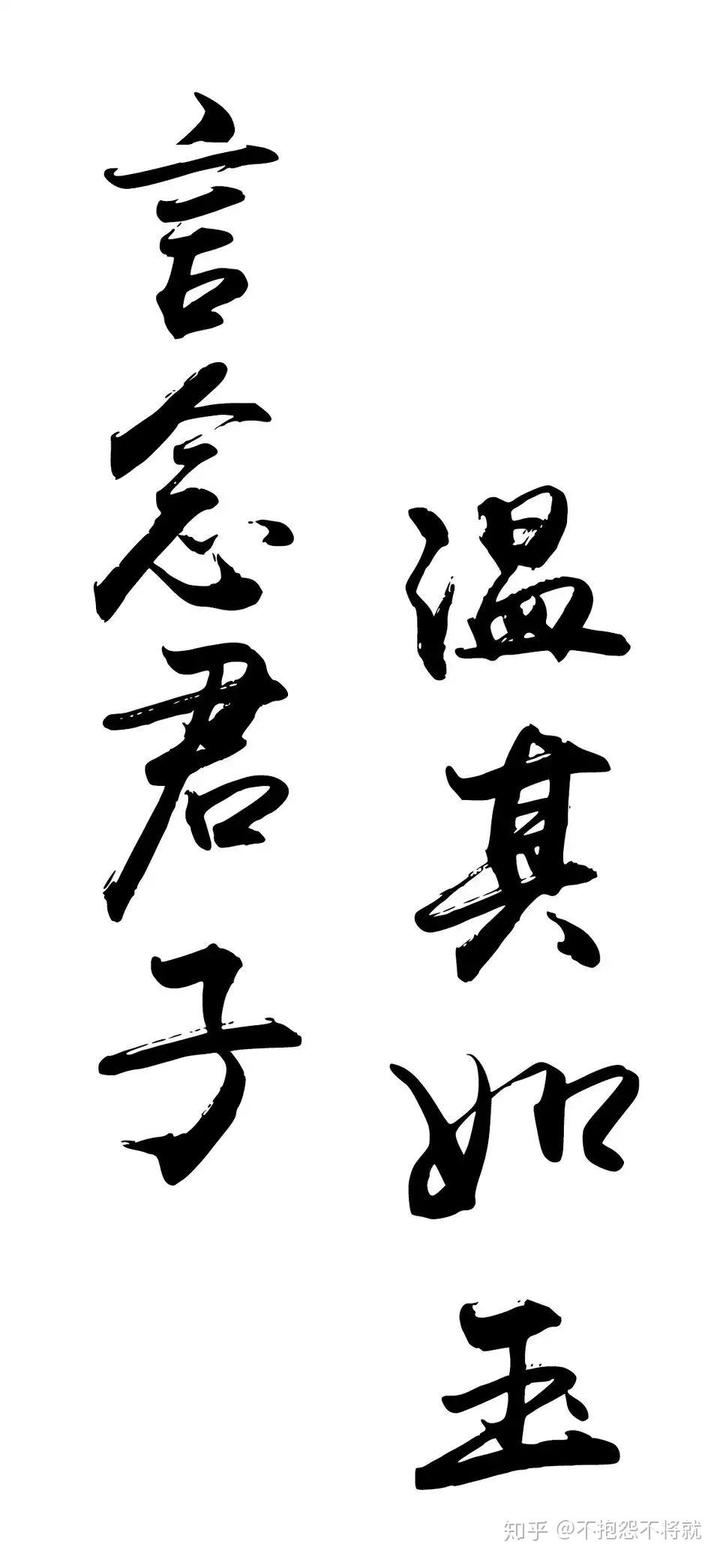 言念君子
温其如玉
知乎 @不抱怨不将就